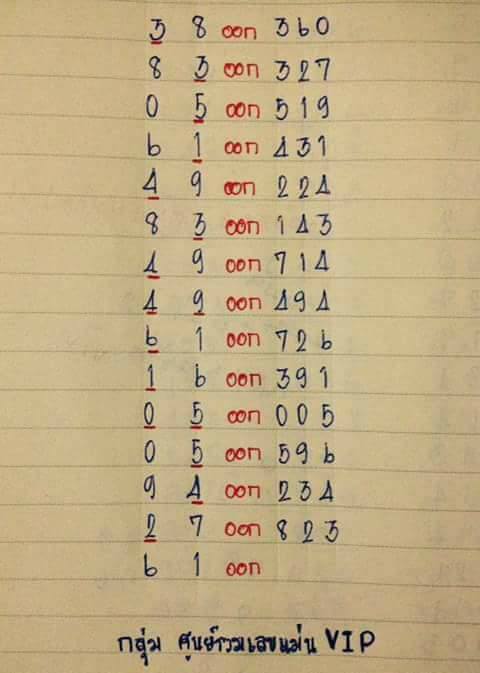 3 8 ออก 360
8 3 ออก 327
0 5 ออก 519
6 1 ออก 431
4 9 ออก 224
8 3 ออก 143
4 9 ออก 714
4 9 ออก 494
6 1 ออก 726
1 6 ออก 391
0 5 ออก 005
0 5 ออก 596
9 4 ออก 234
2 7 ออก 823
6 1 ออก
กลุ่ม ศูนย์รวมเลขแม่น VIP